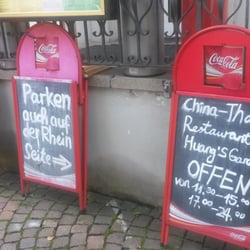 Coca-Cola
Parken
auch auf
der Rhein
Seite →
Coca-Cola
China-Tha
Restauran
Huang's Gar
OFFEN
von 11.30 - 15.00
17.00 - 24.00
Coca-Cola